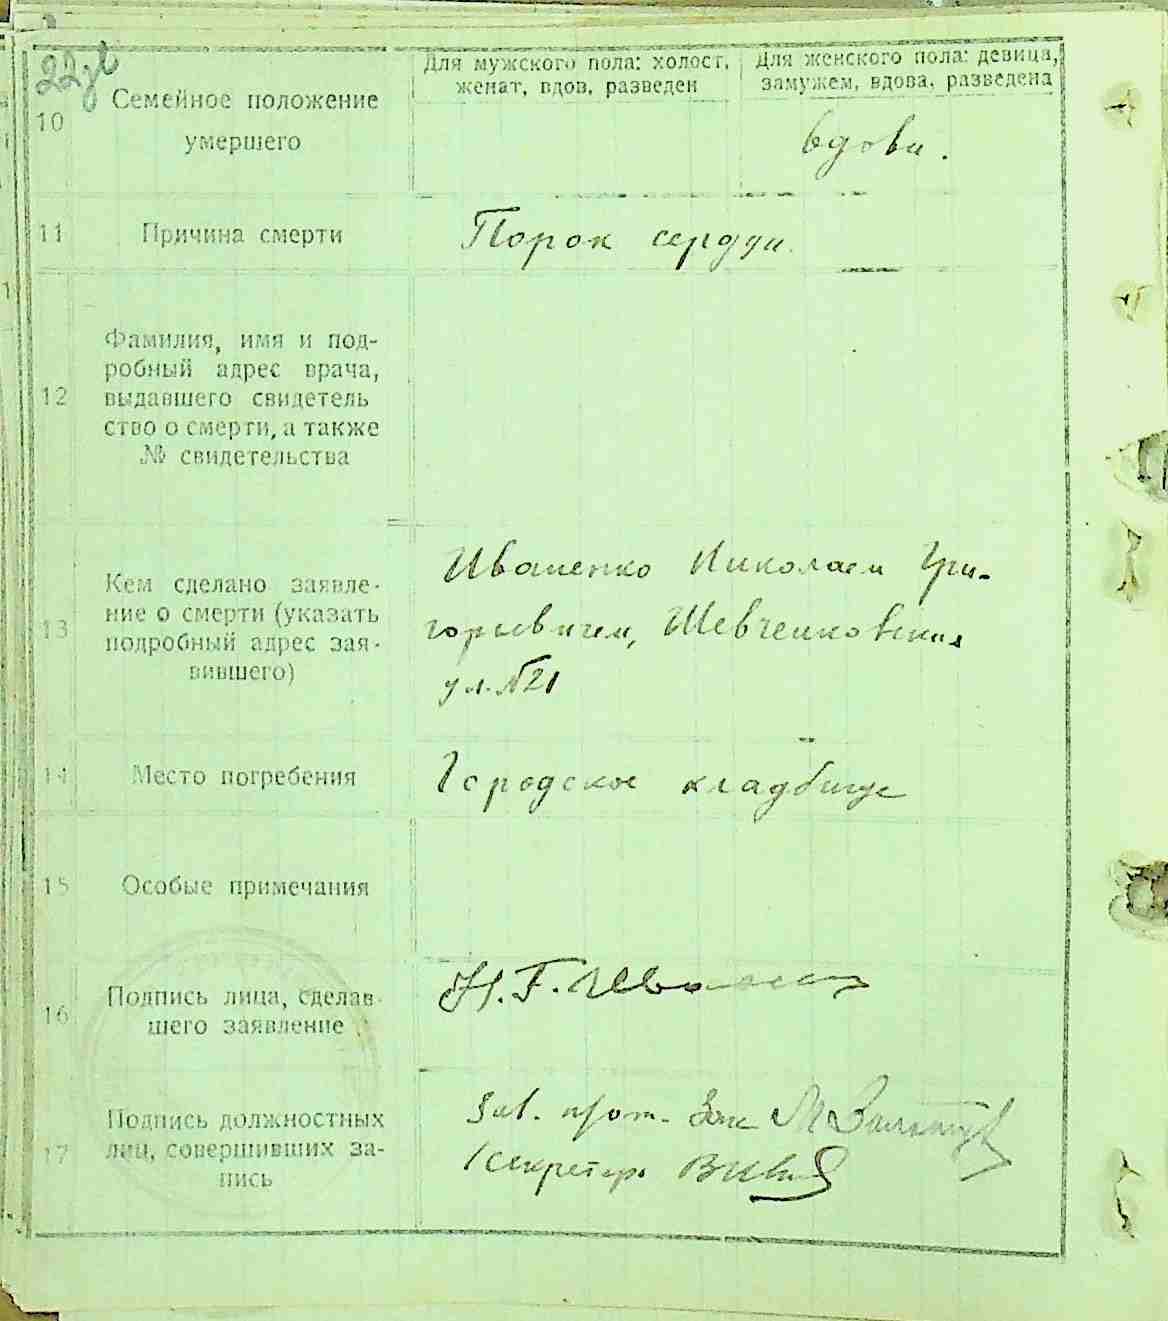 22
Для мужского пола: холост, женат, вдов, разведен
Для женского пола: девица, замужем, вдова, разведена
10
Семейное положение
умершего
вдова.
11
Причина смерти
Порок сердца.
12
Фамилия, имя и под-
робный адрес врача,
выдавшего свидетель
ство о смерти, а также
№ свидетельства
13
Кем сделано заявле-
ние о смерти (указать
подробный адрес зая-
вившего)
Иваненко Николаем Гри-
горьевичем, Шевченковская
ул. № 21
14
Место погребения
Городское кладбище
15
Особые примечания
16
Подпись лица, сделав-
шего заявление
Н. Г. Иваненко
17
Подпись должностных
лиц, совершивших за-
пись
Зав.
Секретарь